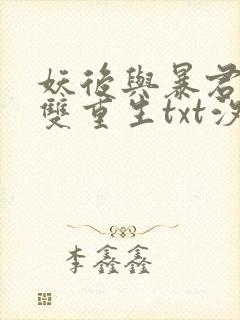 妖後與暴君
雙重生txt沒
李鑫鑫